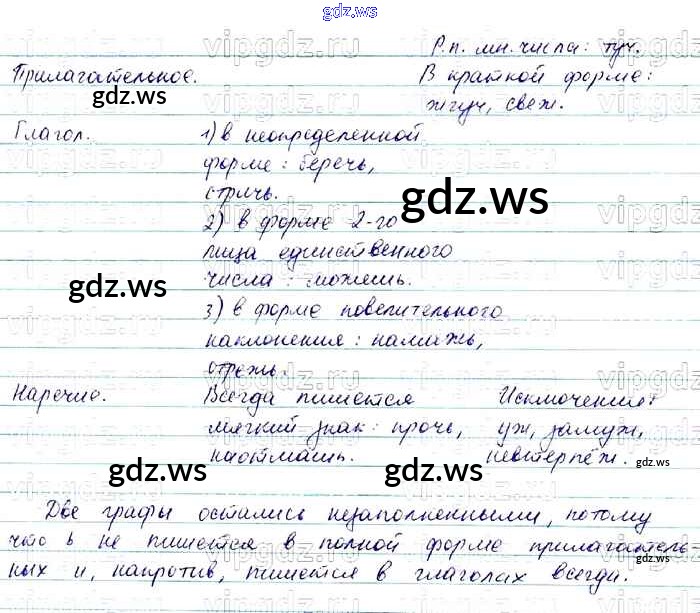 gdz.ws
Р.п. мн. числа: туч.
Прилагательное. В краткой форме:
жгуч, свеж.
Глагол. 1) в неопределенной
форме: беречь,
стричь.
2) в форме 2-го
лица единственного
числа: можешь.
3) в форме повелительного
наклонения: намажь,
отрежь.
Наречие. Всегда пишется Исключения:
мягкий знак: прочь, уж, замуж,
наотмашь. невтерпёж.
Две графы остались незаполненными, потому
что ь не пишется в полной форме прилагатель-
ных и, напротив, пишется в глаголах всегда.